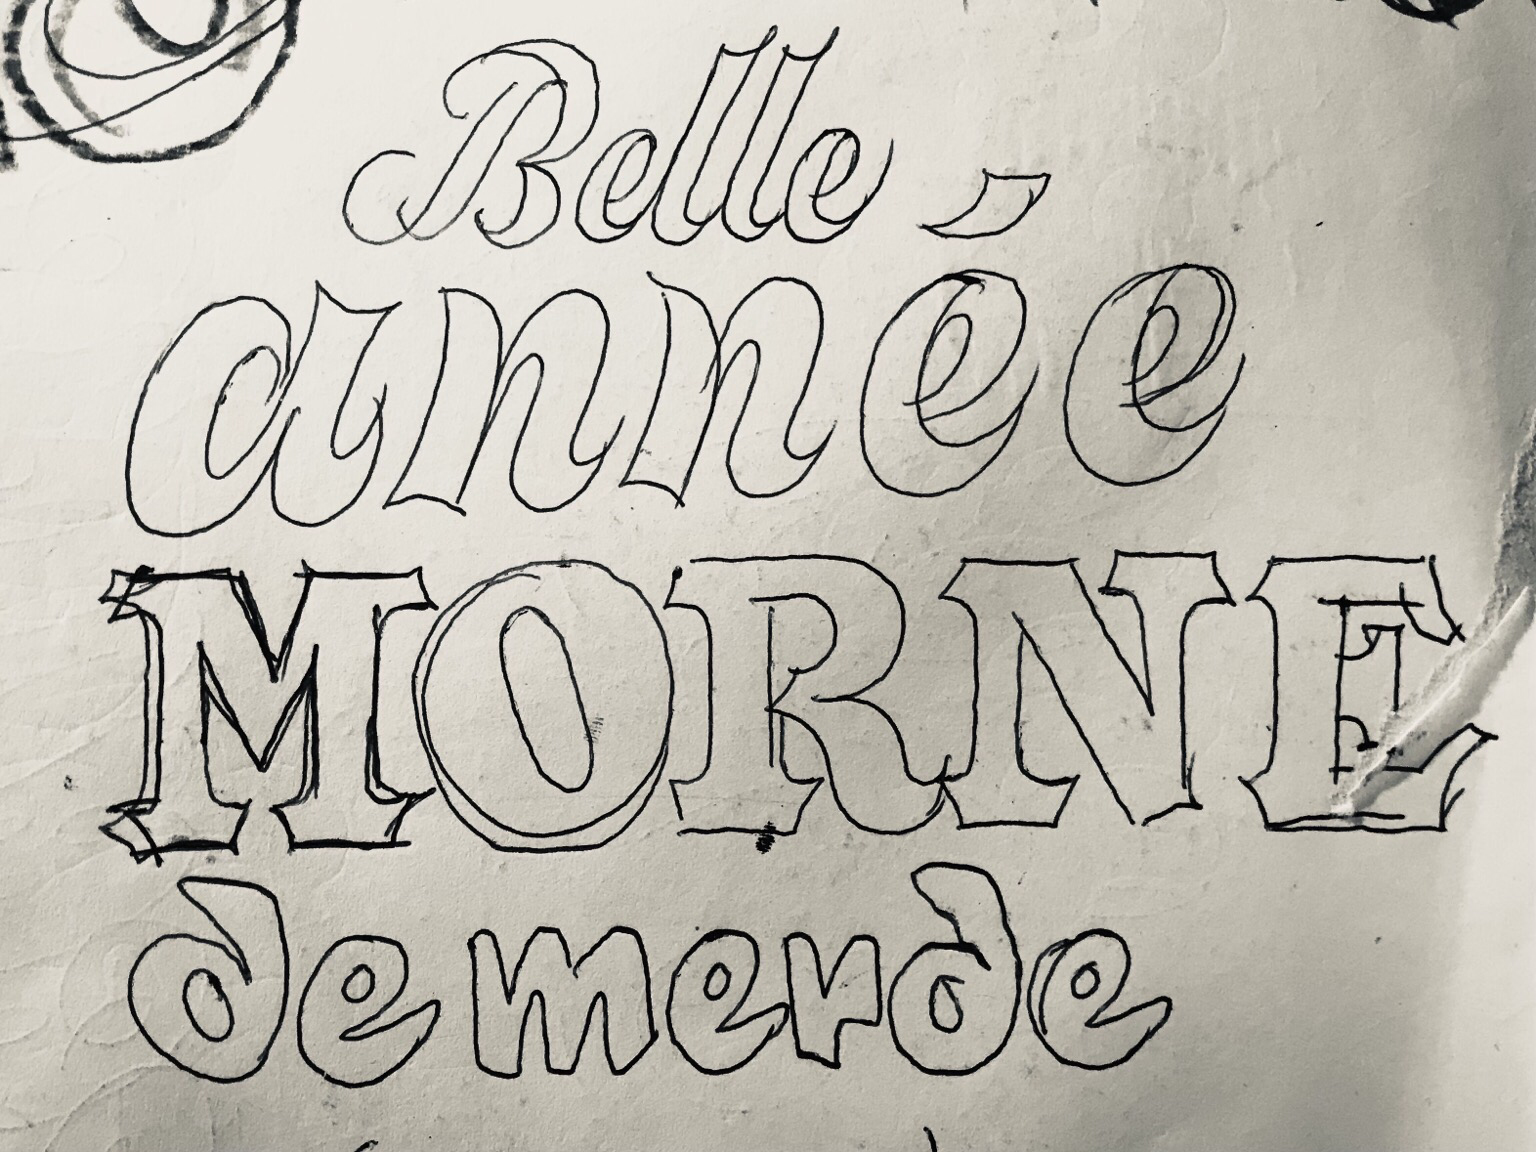 Belle
année
MORNE
de merde